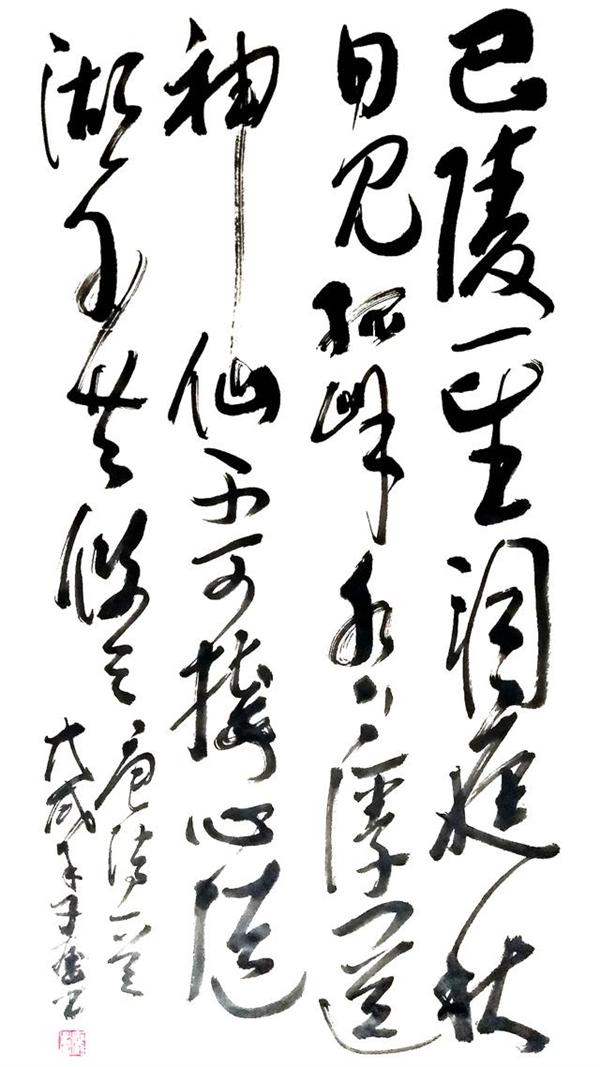 巴陵一望洞庭秋
日见孤峰水上浮闻道
神仙不可接心随
湖水共悠悠
唐诗一首
戊戌年